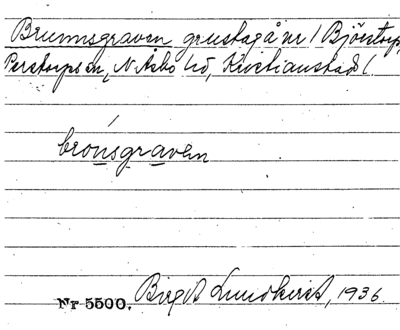 Brunnsgraven grustag å nr 1 Björstorp,
Perstorps sn, N. Åsbo hd, Kristianstads l.
brónsgraven
Nr 5500. Birgit Lundkvist, 1936.